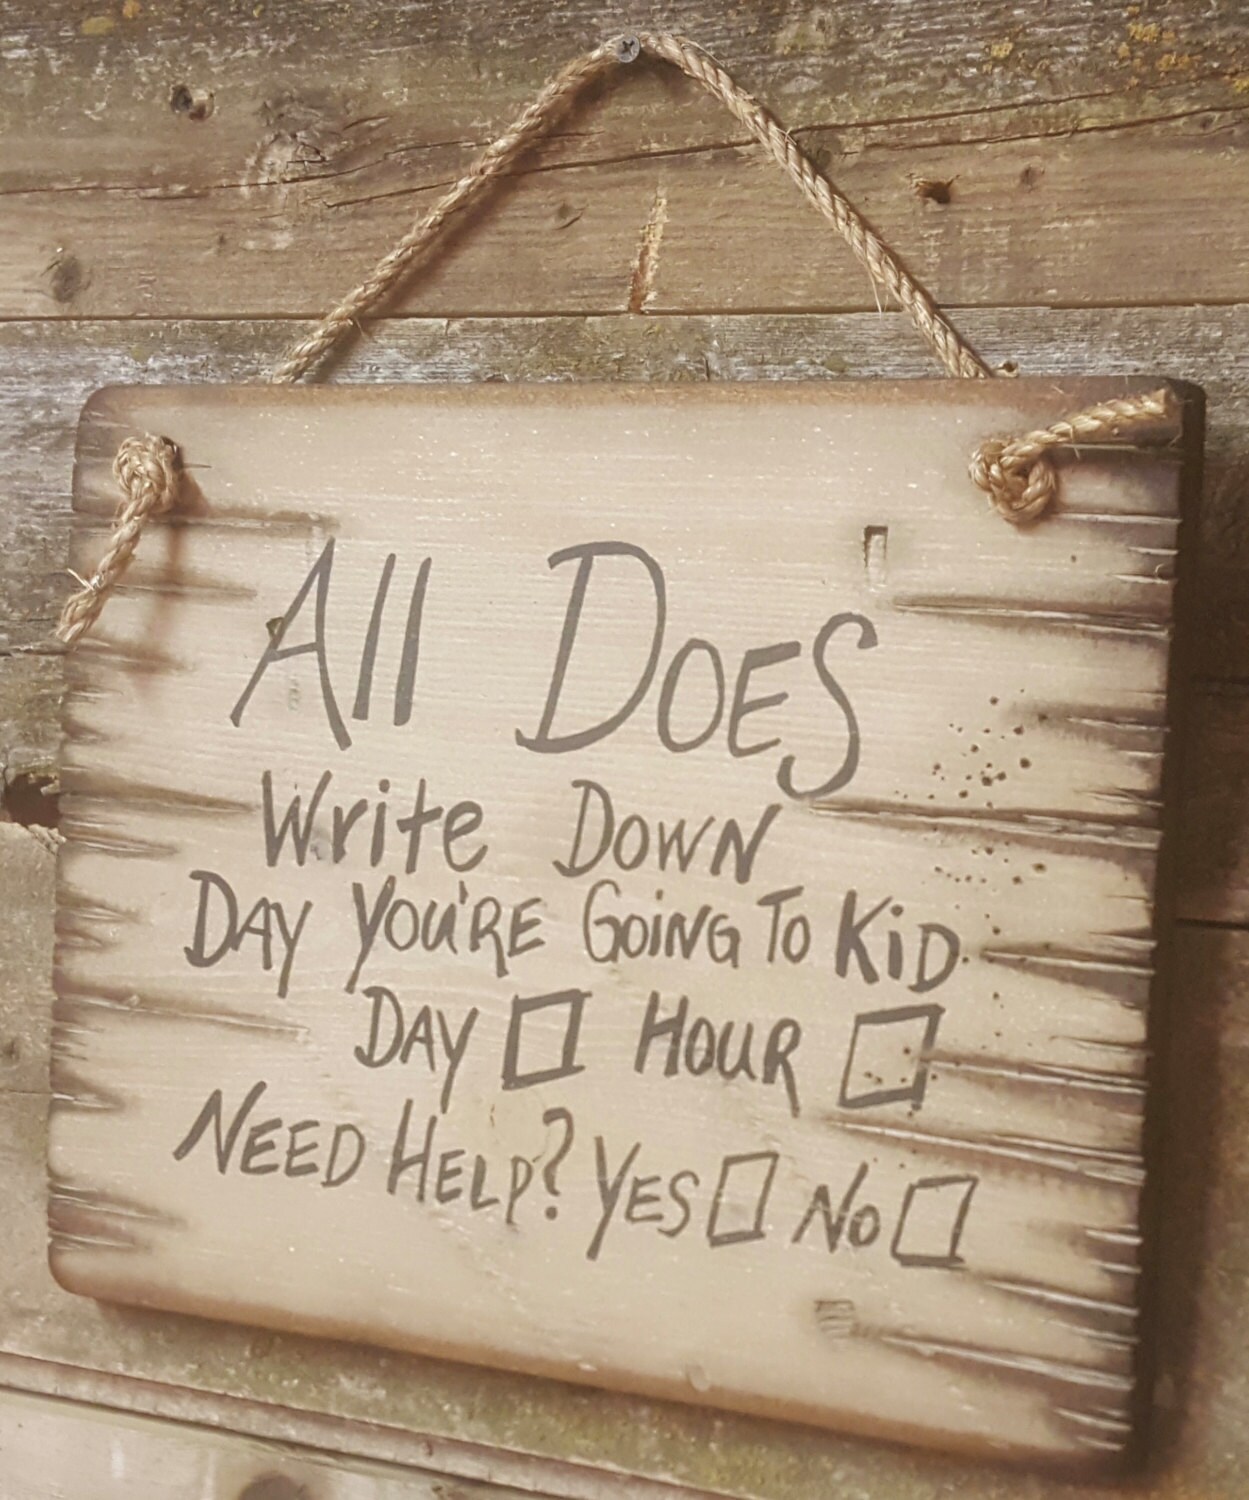 All DOES'
Write DOWN
DAY YOU'RE GOING TO KiD
DAY HOUR
NEED HELP? YES NO